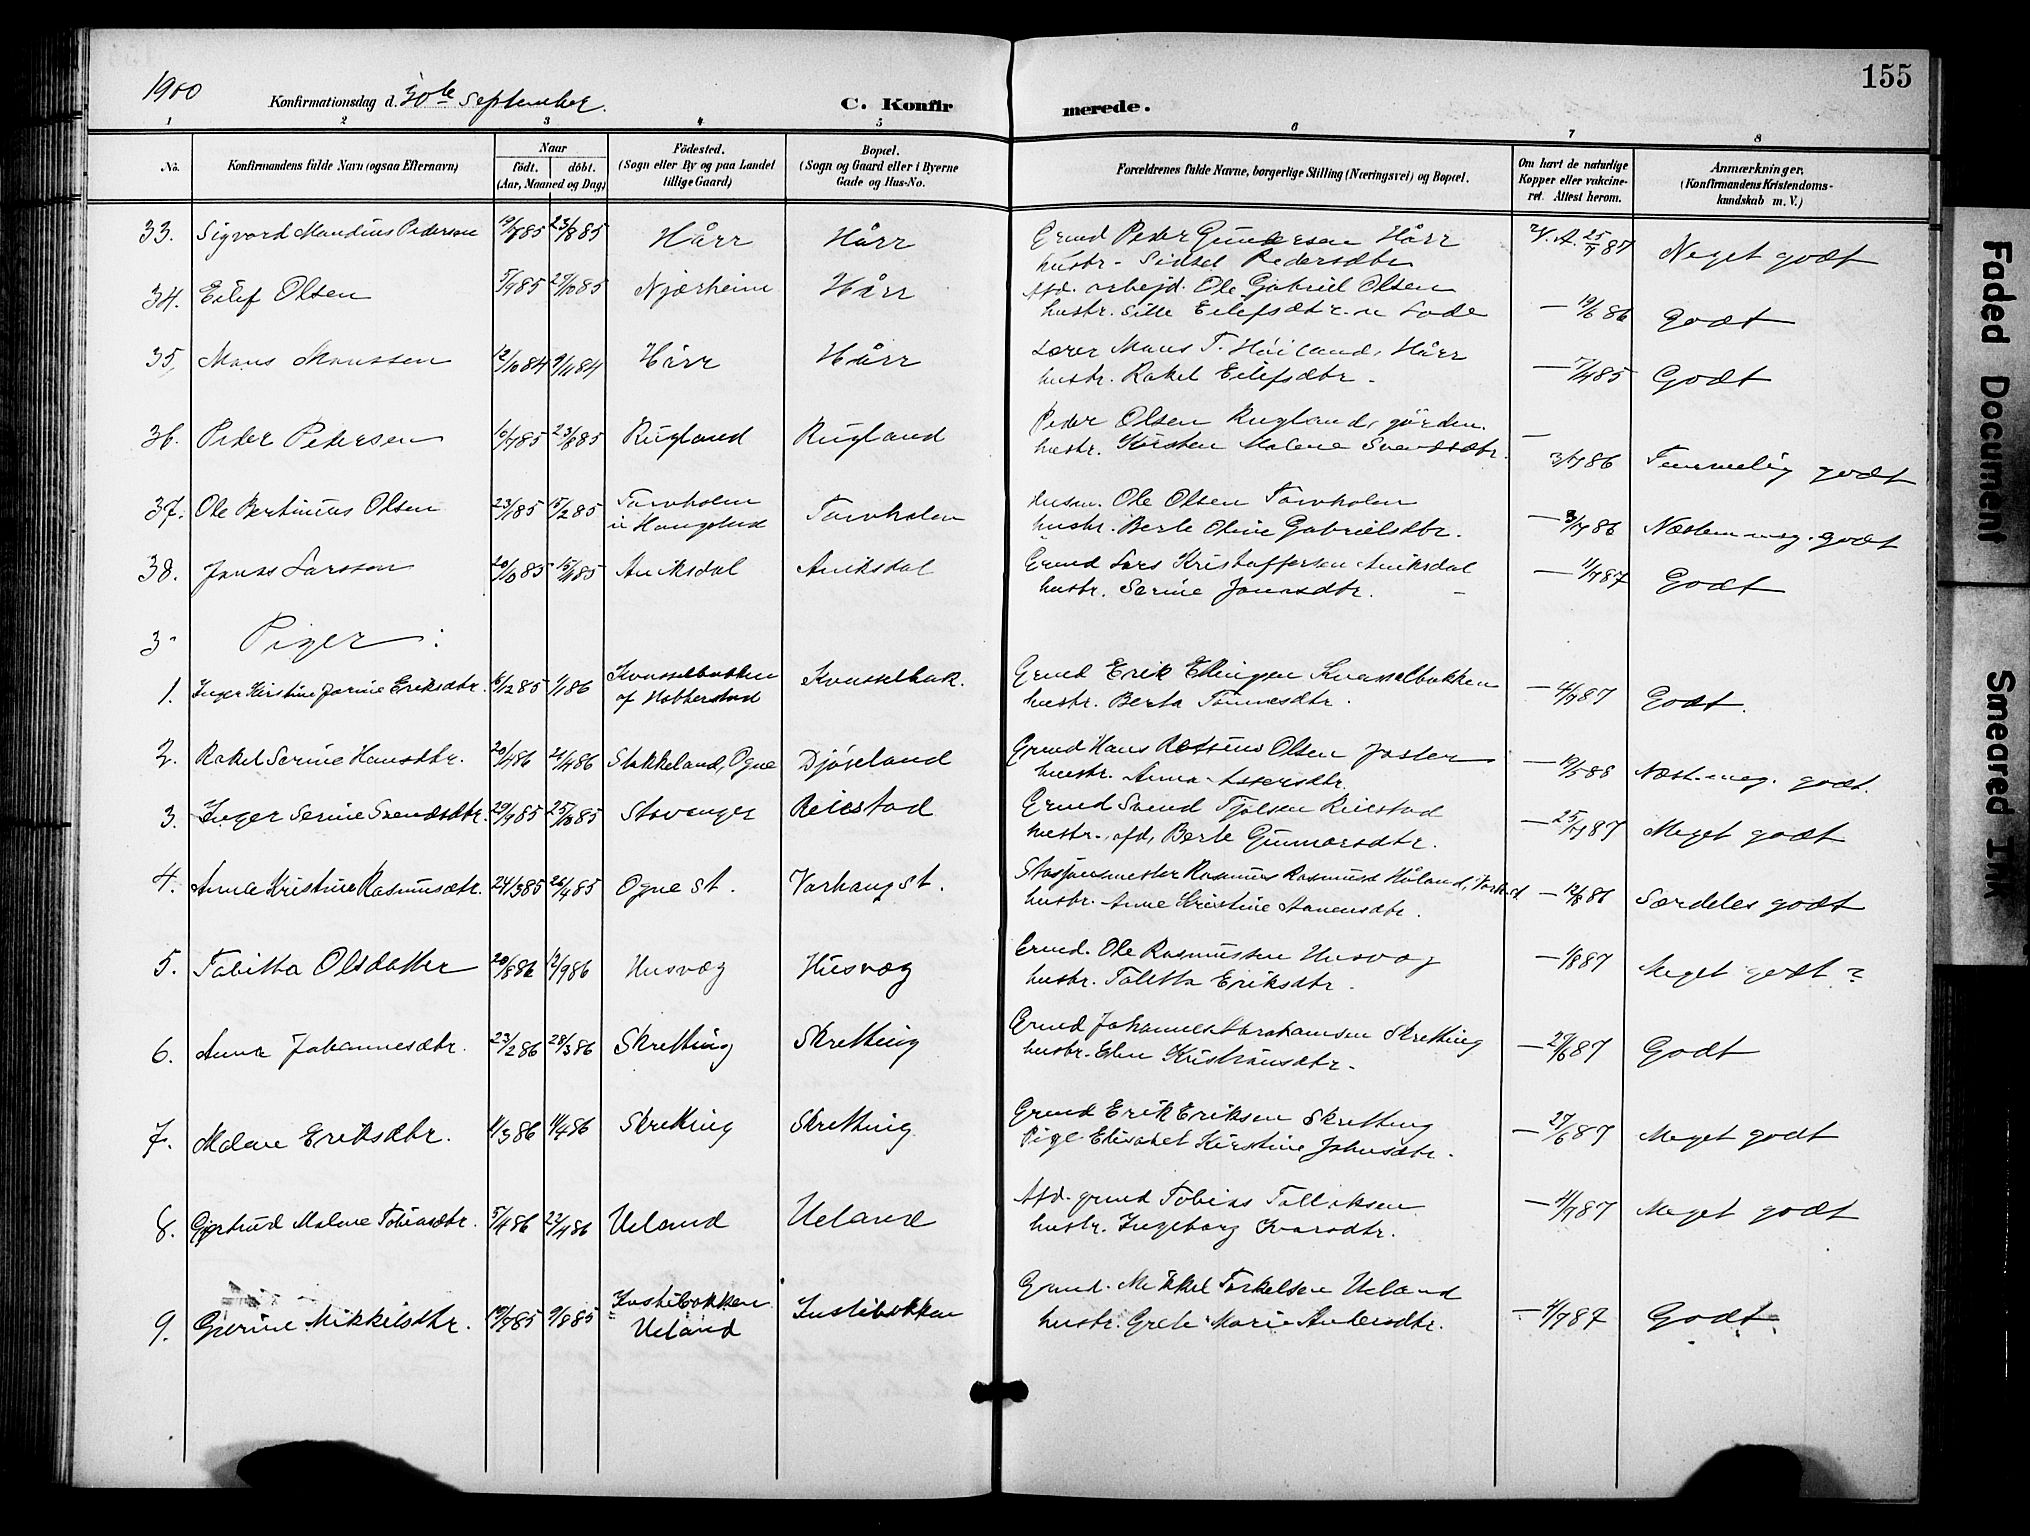 155
1900
Konfirmationsdag d. 30te September.
C. Konfirmerede.
1 2 3 4 5 6 7 8
No.
Konfirmandens fulde Navn (ogsaa Efternavn)
Naar
født. døbt.
(Aar, Maaned og Dag)
Fødested.
(Sogn eller By og paa Landet
tillige Gaard)
Bopæl.
(Sogn og Gaard eller i Byerne
Gade og Hus-No.
Forældrenes fulde Navne, borgerlige Stilling (Næringsvei) og Bopæl.
Om havt de naturlige
Kopper eller vakcine-
ret. Attest herom.
Anmærkninger.
(Konfirmandens Kristendoms-
kundskab m. V.)
33. Sigvard Mandius Pedersen 19/785 23/885 Hårr Hårr Grmd Peder Gundersen Hårr V. A. 25/7 87 Meget godt
hustr. Sidsel Pedersdtr
34. Eilef Olsen 5/985 29/1085 Njærheim Hårr Afd. arbejd. Ole Gabriel Olsen
hustr. Sille Eilefsdtr. — 19/686 Godt
35, Mons Monssen 12/1084 9/1184 Hårr Hårr Lærer Mons T. Høiland, Hårr
hustr. Rakel Eilefsdtr. — 7/485 Godt
36. Peder Pedersen 16/785 23/885 Rugland Rugland Peder Olsen Rugland, gårdm.
hustr. Kirsten Malene Svendsdtr. — 3/786 Temmelig godt
37. Ole Bertinius Olsen 23/185 15/285 Torvholen Torvholen Husm. Ole Olsen Torvholen
i Haugstad hustr. Berte Oline Gabrielsdtr. — 3/786 Næsten meg. godt
38. Jonas Larssen 20/1085 15/1185 Aniksdal Aniksdal Grmd Lars Kristoffersen Aniksdal — 11/787 Godt
hustr. Serine Jonasdtr. –
3. Piger :
1. Inger Kirstine Jorine Eriksdtr. 6/1285 1/186 Kvasselbakken Kvasselbak. Grmd Erik Ellingsen Kvasselbakken
af Hobberstad hustr. Berta Tønnesdtr. — 4/787 Godt.
2. Rakel Serine Hansdtr. 20/486 21/486 Stokkeland, Ogne Djøveland Grmd Hans Olsen
hustr. Anna Assersdtr. — 19/588 Næst. meg. godt.
3. Inger Serine Svendsdtr. 29/985 25/1085 Stavanger Reiestad Grmd Svend Reiestad
hustr., afd, Berte Gunnarsdtr. — 25/787 Meget godt
4. Anna Kristine Rasmusdtr. 24/385 26/485 Ogne st. Varhaug st. Stasjonsmester Rasmus Rasmussen Håland, Varh. st
hustr. Anne Kristine Aanensdtr. — 12/886 Særdeles godt
5. Tabitta Olsdatter 20/886 12/986 Husvæg Husvæg Grmd. Ole Rasmussen Husvæg
hustr. Talitta Eriksdtr. — 1/887 Meget godt ?
6. Anna Johannesdtr. 23/286 28/386 Skretting Skretting Grmd Johannes Abrahamsen Skretting
hustr. Elen Kristiansdtr. — 27/687 Godt
7. Malene Eriksdtr. 1/386 11/486 Skretting Skretting Grmd Erik Eriksen Skretting
Pige Elisabet Kirstine Johnsdtr. — 27/687 Meget godt
8. Gjertrud Malene Tobiasdtr. 5/486 23/486 Ueland Ueland Afd. grmd Tobias Tollaksen
hustr. Ingeborg Ivarsdtr. — 4/787 Meget godt
9. Gurine Mikkelsdtr. 19/785 9/885 Instebakken Instebakken Grmd. Mikkel Torkelsen Ueland
Ueland hustr. Grete Marie Andersdtr. — 4/787 Godt
Faded Document
Smeared Ink